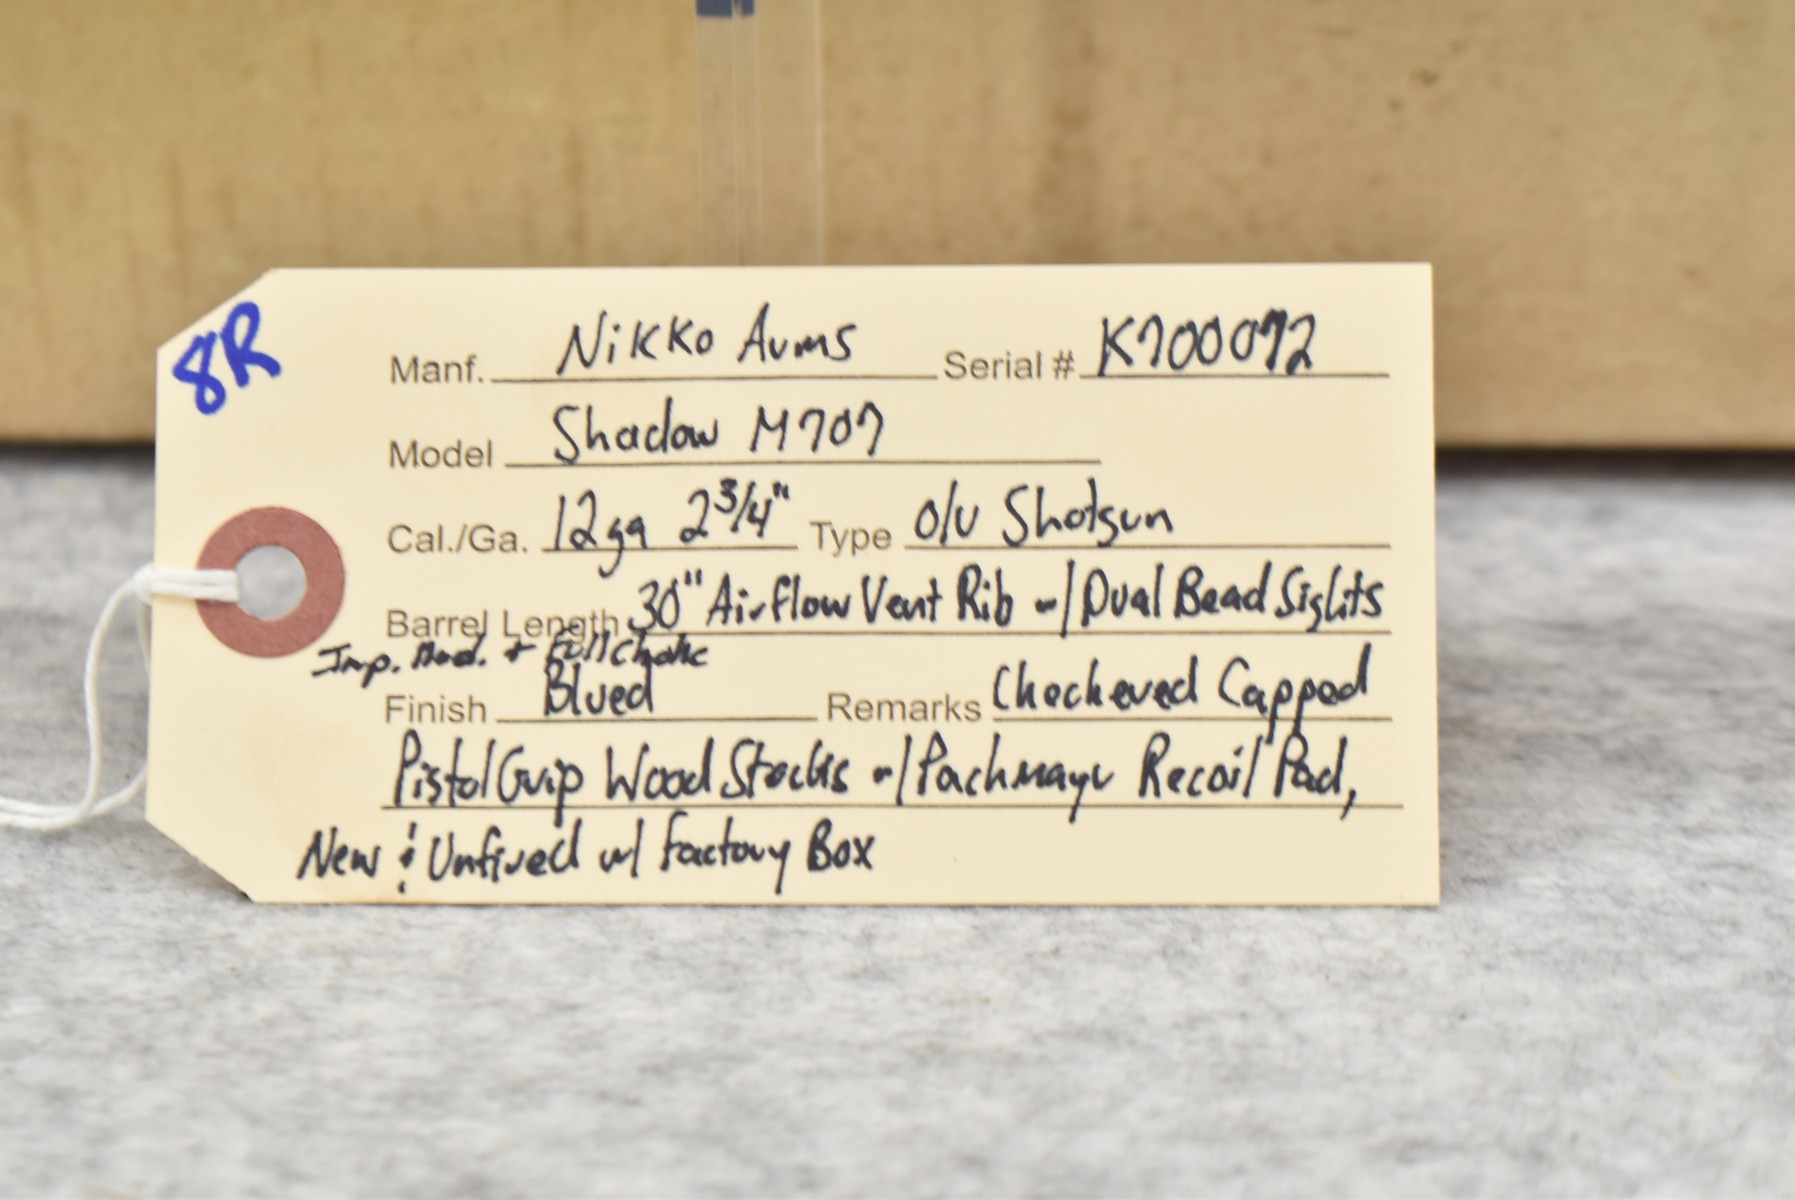 8R
Manf. Nikko Arms Serial # K700072
Model Shadow M707
Cal./Ga. 12ga 2 3/4" Type O/U Shotgun
Barrel Length 30" Airflow Vent Rib w/ Dual Bead Sights
Imp. Mod. + Full Choke
Finish Blued Remarks Checkered Capped
Pistol Grip Wood Stocks w/ Pachmayr Recoil Pad,
New & Unfired w/ Factory Box